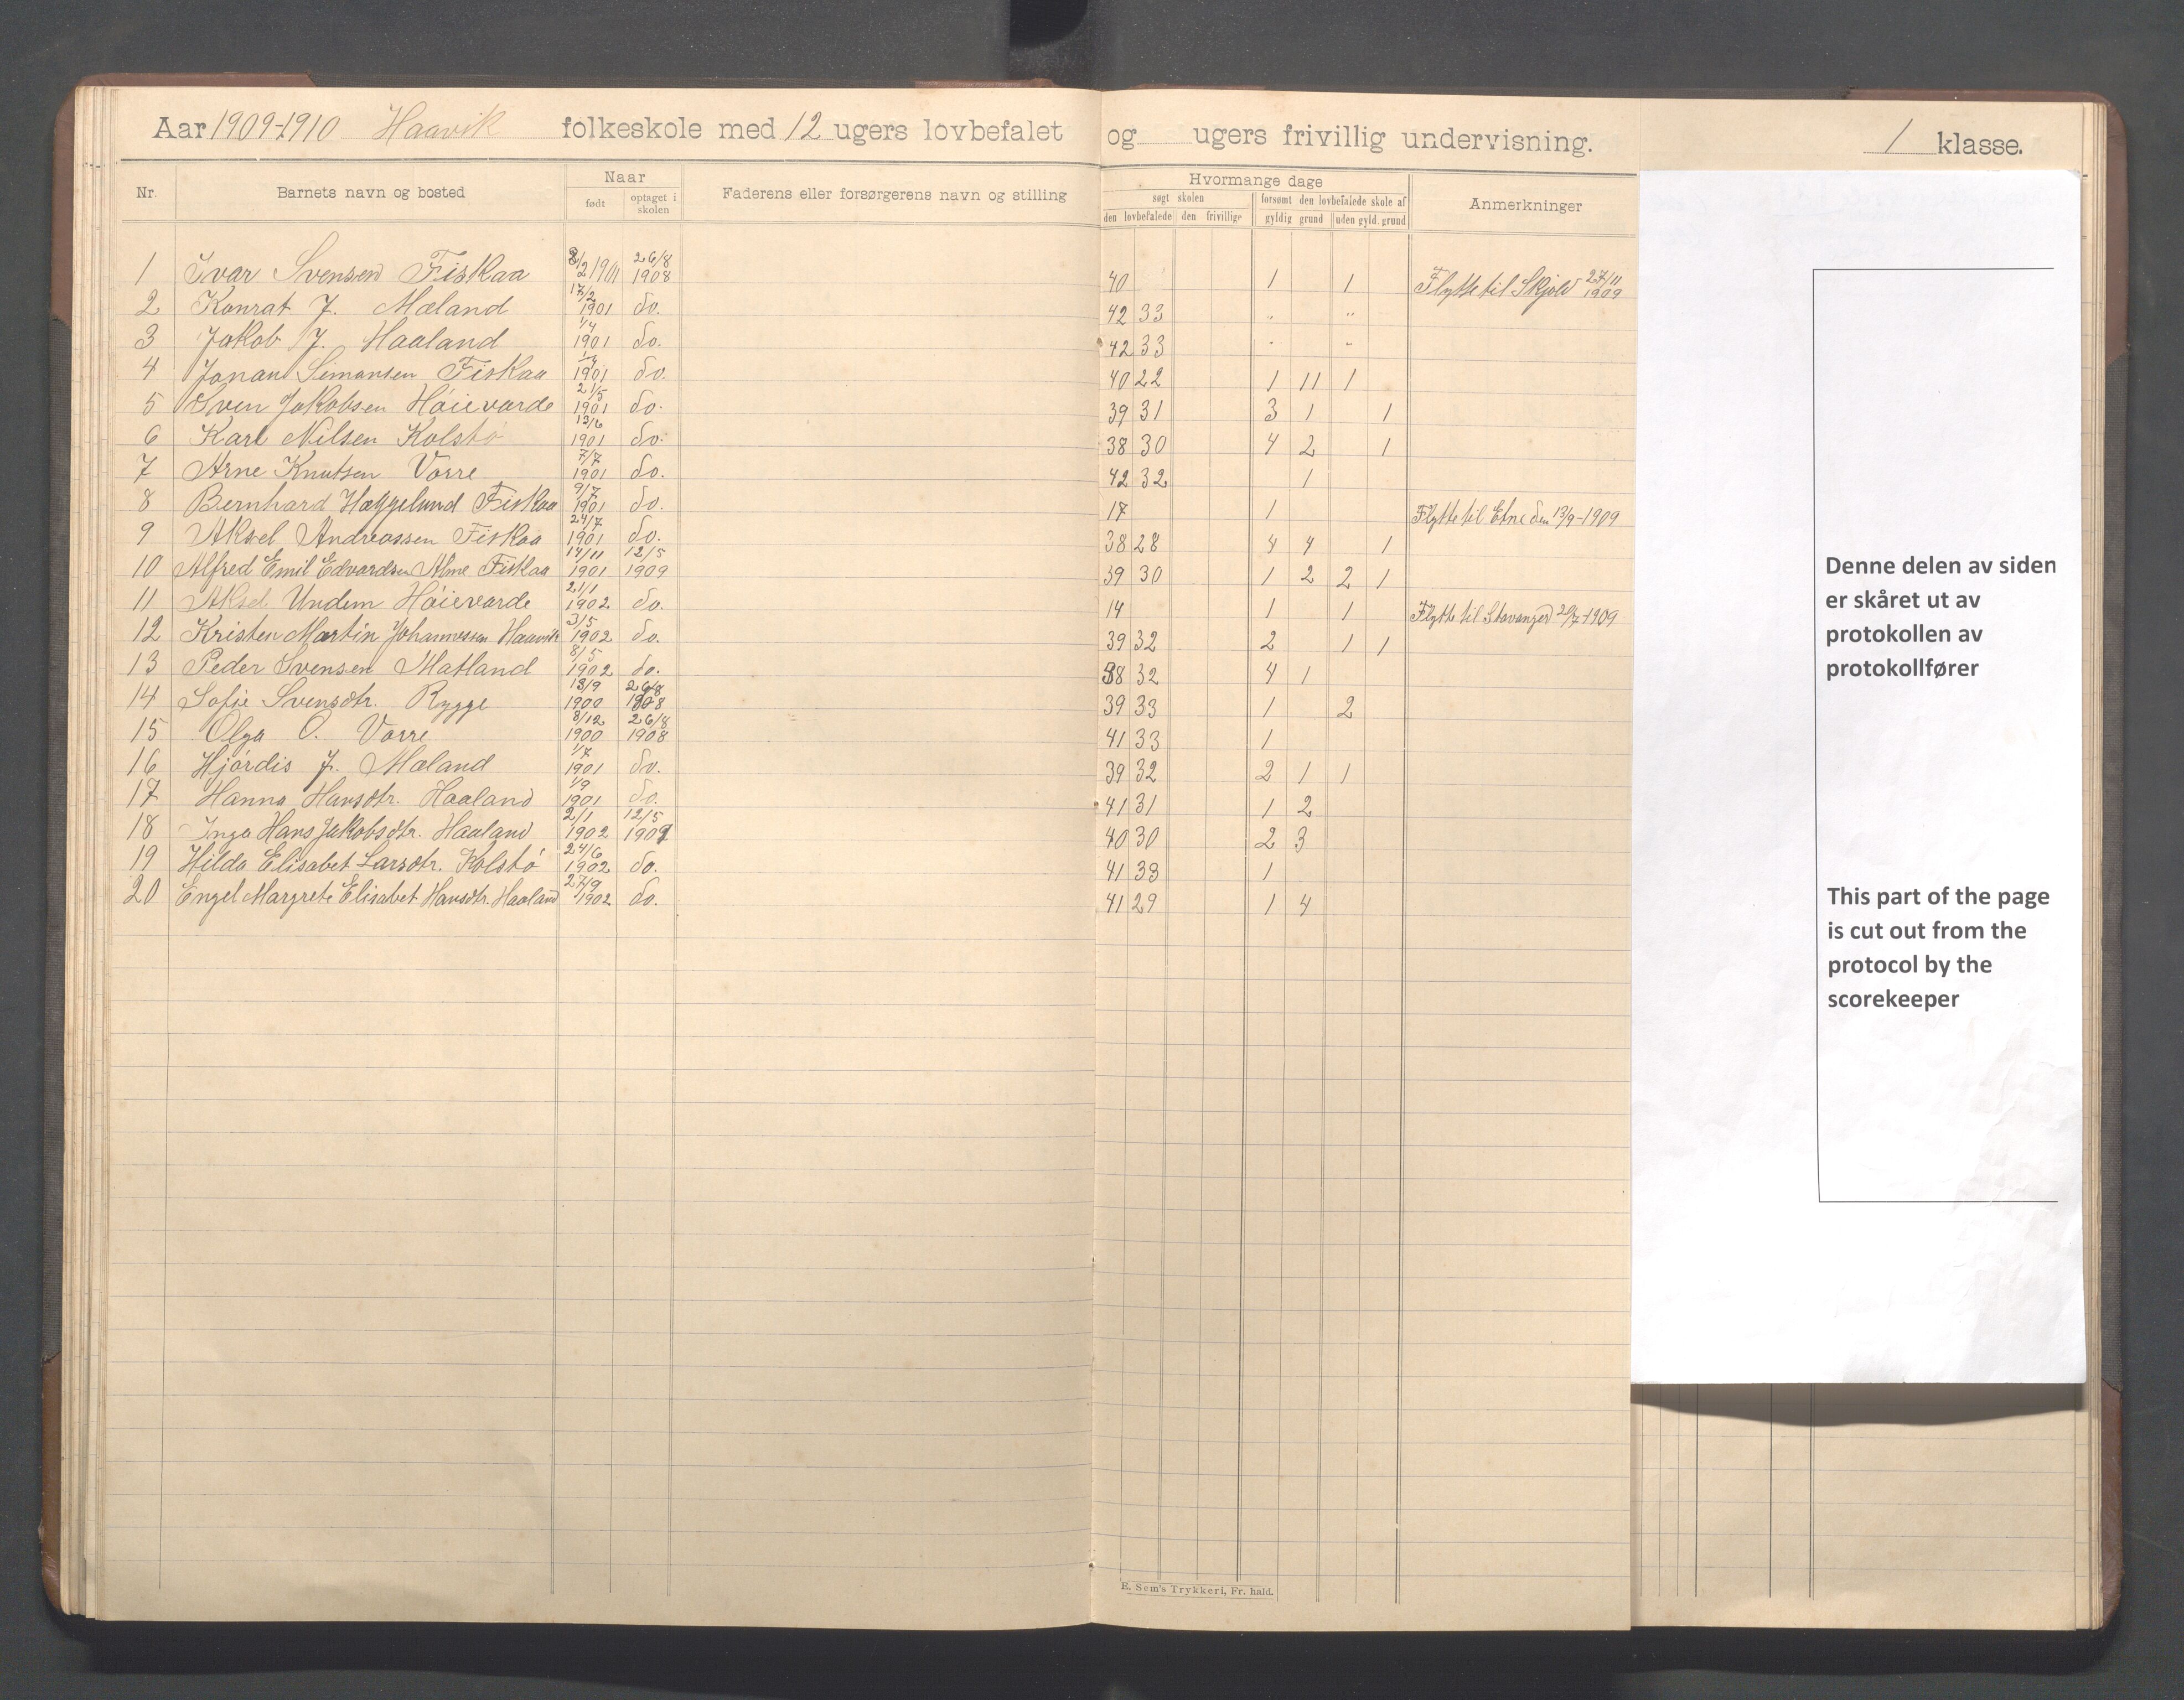 Aar 1909-1910 Haavik folkeskole med 12 ugers lovbefalet og ugers frivillig undervisning. 1 klasse.
Nr. Barnets navn og bosted Naar født optaget i skolen Faderens eller forsørgerens navn og stilling Hvormange dage søgt skolen den lovbefalede den frivillige forsømt den lovbefalede skole af gyldig grund uden gyld. grund Anmerkninger
1 Ivar Svensen Fiskaa 8/2 1901 26/8 1908 40 1 1 Flytte til Skjold 27/11 1909
2 Konrat J. Mæland 17/2 1901 do. 42 33 " "
3 Jakob J. Haaland 1/4 1901 do. 42 33 " "
4 Jonan Simonsen Fiskaa 1/4 1901 do. 40 22 1 11 1
5 Sven Jakobsen Høievarde 21/5 1901 do. 39 31 3 1 1
6 Karl Nilsen Kolstø 13/6 1901 do. 38 30 4 2 1
7 Arne Knutsen Vorre 7/7 1901 do. 42 32 1
8 Bernhard Hæggelund Fiskaa 9/7 1901 do. 17 1 Flytte til Etne den 13/9-1909
9 Aksel Andreassen Fiskaa 24/7 1901 do. 38 28 4 4 1
10 Alfred Emil Edvardsen Alme Fiskaa 14/11 1901 12/5 1909 39 30 1 2 2 1
11 Aksel Undem Høievarde 21/1 1902 do. 14 1 1 Flytte til Stavanger 20/7-1909
12 Kristen Martin Johannessen Haavik 3/5 1902 do. 39 32 2 1 1
13 Peder Svensen Matland 8/5 1902 do. 38 32 4 1
14 Sofie Svensdtr. Rygge 13/9 1900 26/8 1908 39 33 1 2
15 Olga O. Vorre 8/12 1900 26/8 1908 41 33 1
16 Hjørdis J. Mæland 1/7 1901 do. 39 32 2 1 1
17 Hanna Hansdtr. Haaland 1/9 1901 do. 41 31 1 2
18 Inga Hans Jakobsdtr. Haaland 2/1 1902 12/5 1909 40 30 2 3
19 Hilda Elisabet Larsdtr. Kolstø 24/6 1902 do. 41 33 1
20 Engel Margrete Elisabet Hansdtr. Haaland 27/9 1902 do. 41 29 1 4
E. Sem's Trykkeri, Fr. hald.
Denne delen av siden
er skåret ut av
protokollen av
protokollfører
This part of the page
is cut out from the
protocol by the
scorekeeper